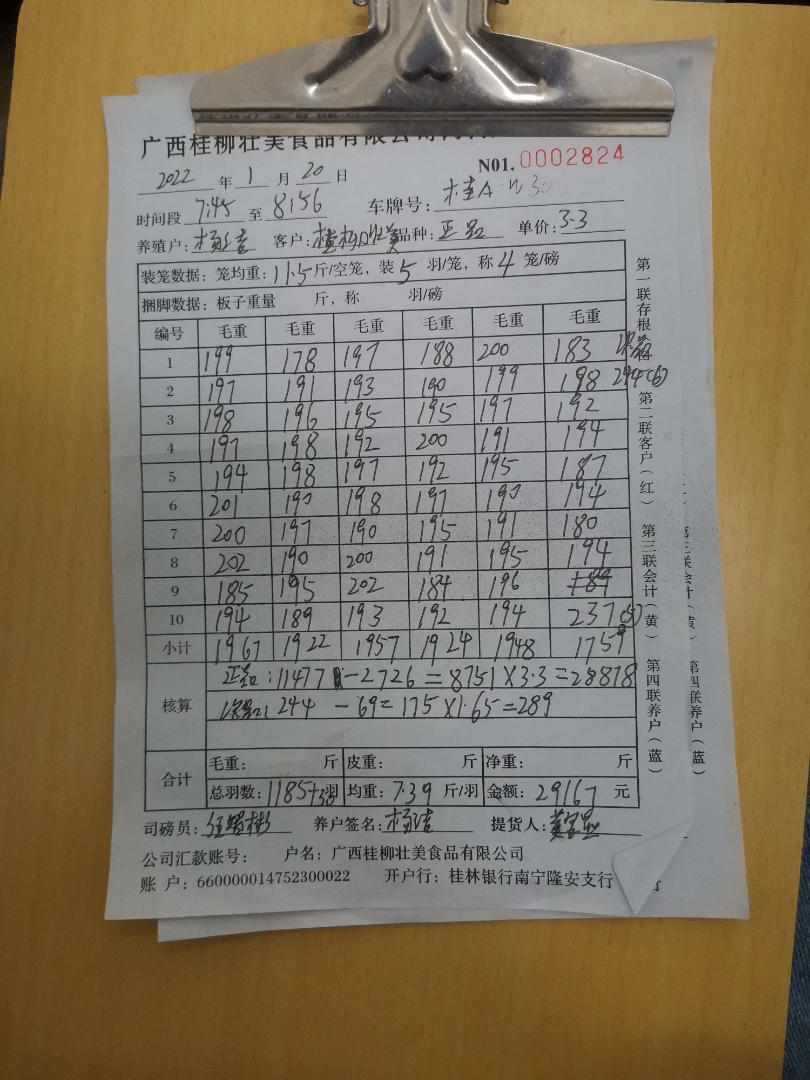 广西桂柳壮美食品有限公司
N01. 0002824
2022 年 1 月 20 日
时间段 7:45 至 8:56 车牌号: 桂A
养殖户: 杨洁 客户: 桂柳壮美 品种: 正品 单价: 3.3
装笼数据: 笼均重: 11.5 斤/空笼, 装 5 羽/笼, 称 4 笼/磅
捆脚数据: 板子重量 斤, 称 羽/磅
编号 毛重 毛重 毛重 毛重 毛重 毛重
1 199 178 197 188 200 183 次品
2 197 191 193 190 199 198 244(6)
3 198 196 195 195 197 192
4 197 198 192 200 191 194
5 194 198 197 192 195 187
6 201 190 198 197 190 194
7 200 197 190 195 191 180
8 202 190 200 191 195 194
9 185 195 202 184 196 189
10 194 189 193 192 194 237(5)
小计 1967 1922 1957 1924 1948 1759
核算 正品: 11477 -2726 = 8751 × 3.3 = 28878
次品: 244 - 69 = 175 × 1.65 = 289
合计 毛重: 斤 皮重: 斤 净重: 斤
总羽数: 1185+羽 均重: 7.39 斤/羽 金额: 29167 元
司磅员: 养户签名: 杨洁 提货人:
公司汇款账号: 户名: 广西桂柳壮美食品有限公司
账 户: 660000014752300022 开户行: 桂林银行南宁隆安支行 行
第一联存根
第二联客户(红)
第三联会计(黄)
第四联养户(蓝)
第三联会计(黄)
第四联养户(蓝)